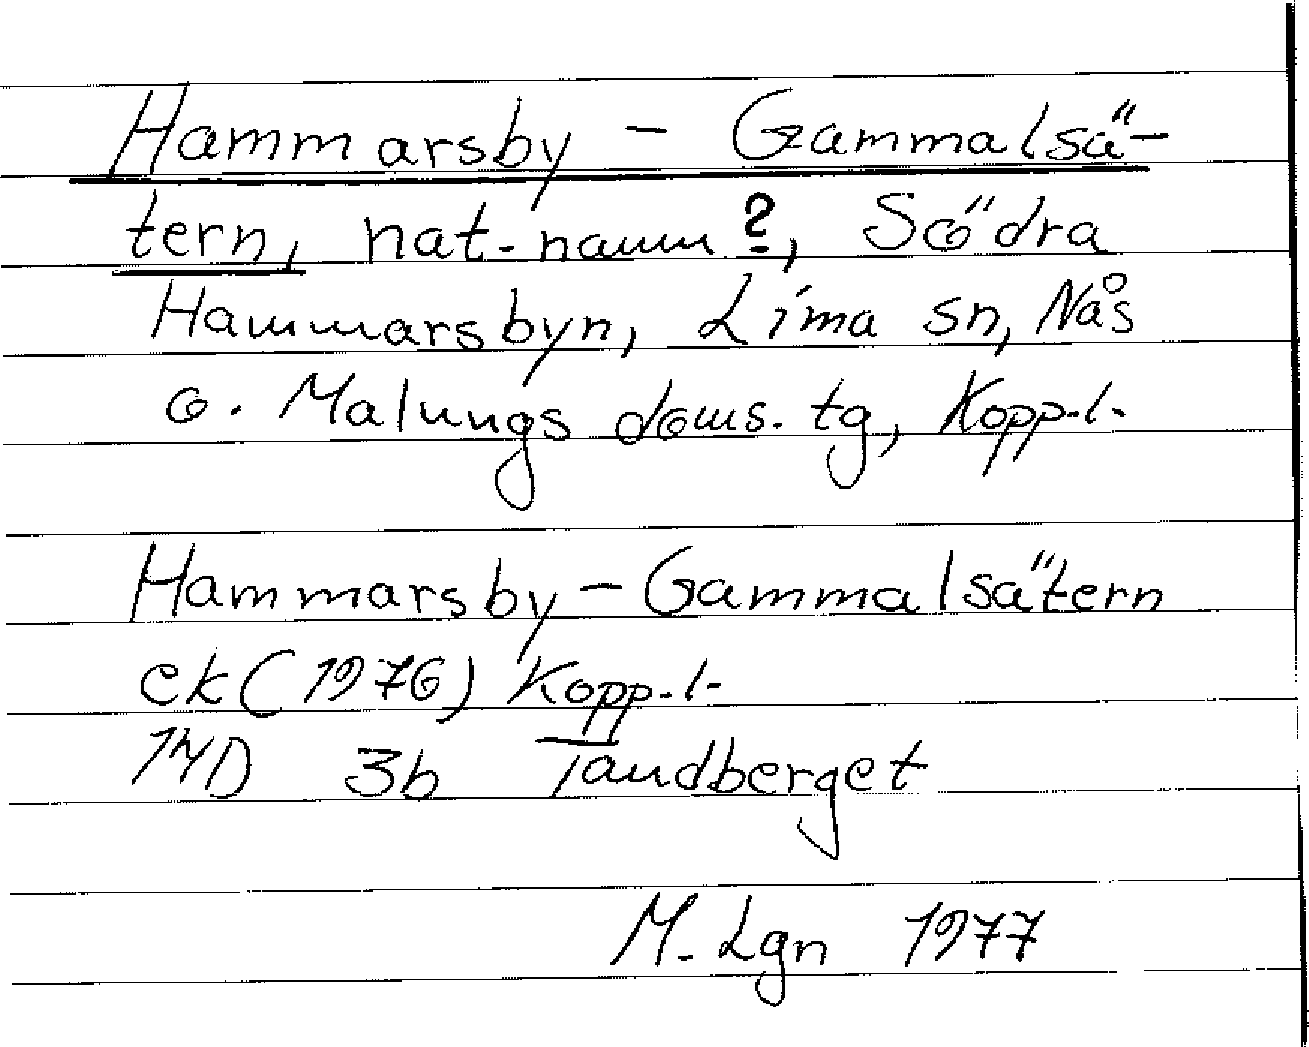 Hammarsby - Gammalsä-
tern, nat.namn ?, Södra
Hammarsbyn, Lima sn, Nås
o. Malungs doms. tg, Kopp.l.
Hammarsby - Gammalsätern
ek (1976) Kopp.l.
14D 3b Tandberget
M. Lgn 1977